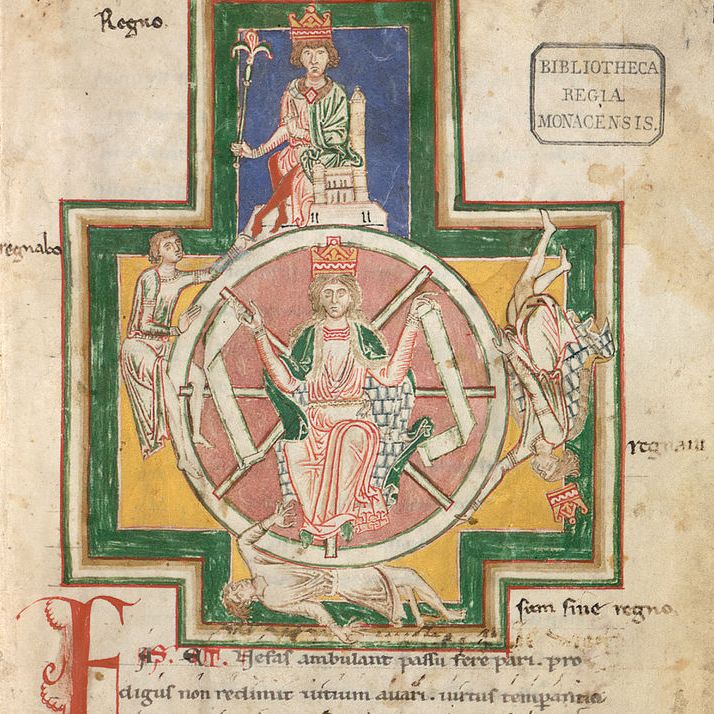 Regno.
BIBLIOTHECA
REGIA
MONACENSIS.
regnabo
regnaui
sum sine regno.
FAS. ET. Nefas ambulant passu fere pari. pro
digus non redimit uitium auari. uirtus temperantia